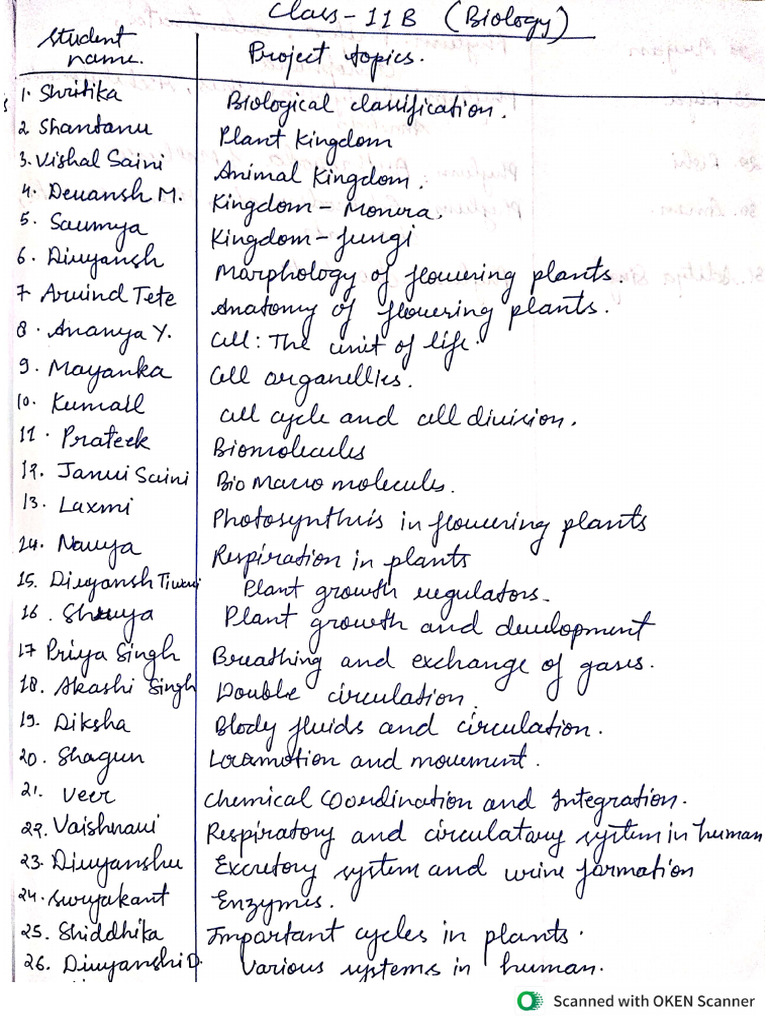 Class-11B (Biology)
Student name. Project topics.
1. Shritika Biological classification.
2 Shantanu Plant Kingdom
3. Vishal Saini Animal Kingdom.
4. Devansh M. Kingdom - Monera.
5. Saumya Kingdom - fungi
6. Divyansh Morphology of flowering plants.
7 Arvind Tete Anatomy of flowering plants.
8. Ananya Y. Cell: The unit of life.
9. Mayanka Cell organellies.
10. Kumail Cell cycle and cell division.
11. Prateek Biomolecules
12. Janvi Saini Bio Macro molecules.
13. Laxmi Photosynthsis in flowering plants
14. Navya Respiration in plants
15. Divyansh Tiwari Plant growth regulators.
16. Plant growth and development
17 Priya Singh Breathing and exchange of gases.
18. Akashi Singh Double circulation.
19. Diksha Blody fluids and circulation.
20. Shagun Locomotion and movement.
21. Veer Chemical Coordination and Integration.
22. Vaishnavi Respiratory and circulatory system in human
23. Divyanshu Excretory system and urine formation
24. Suryakant Enzymes.
25. Shiddhika Important cycles in plants.
26. Divyanshi D. Various systems in human.
Scanned with OKEN Scanner